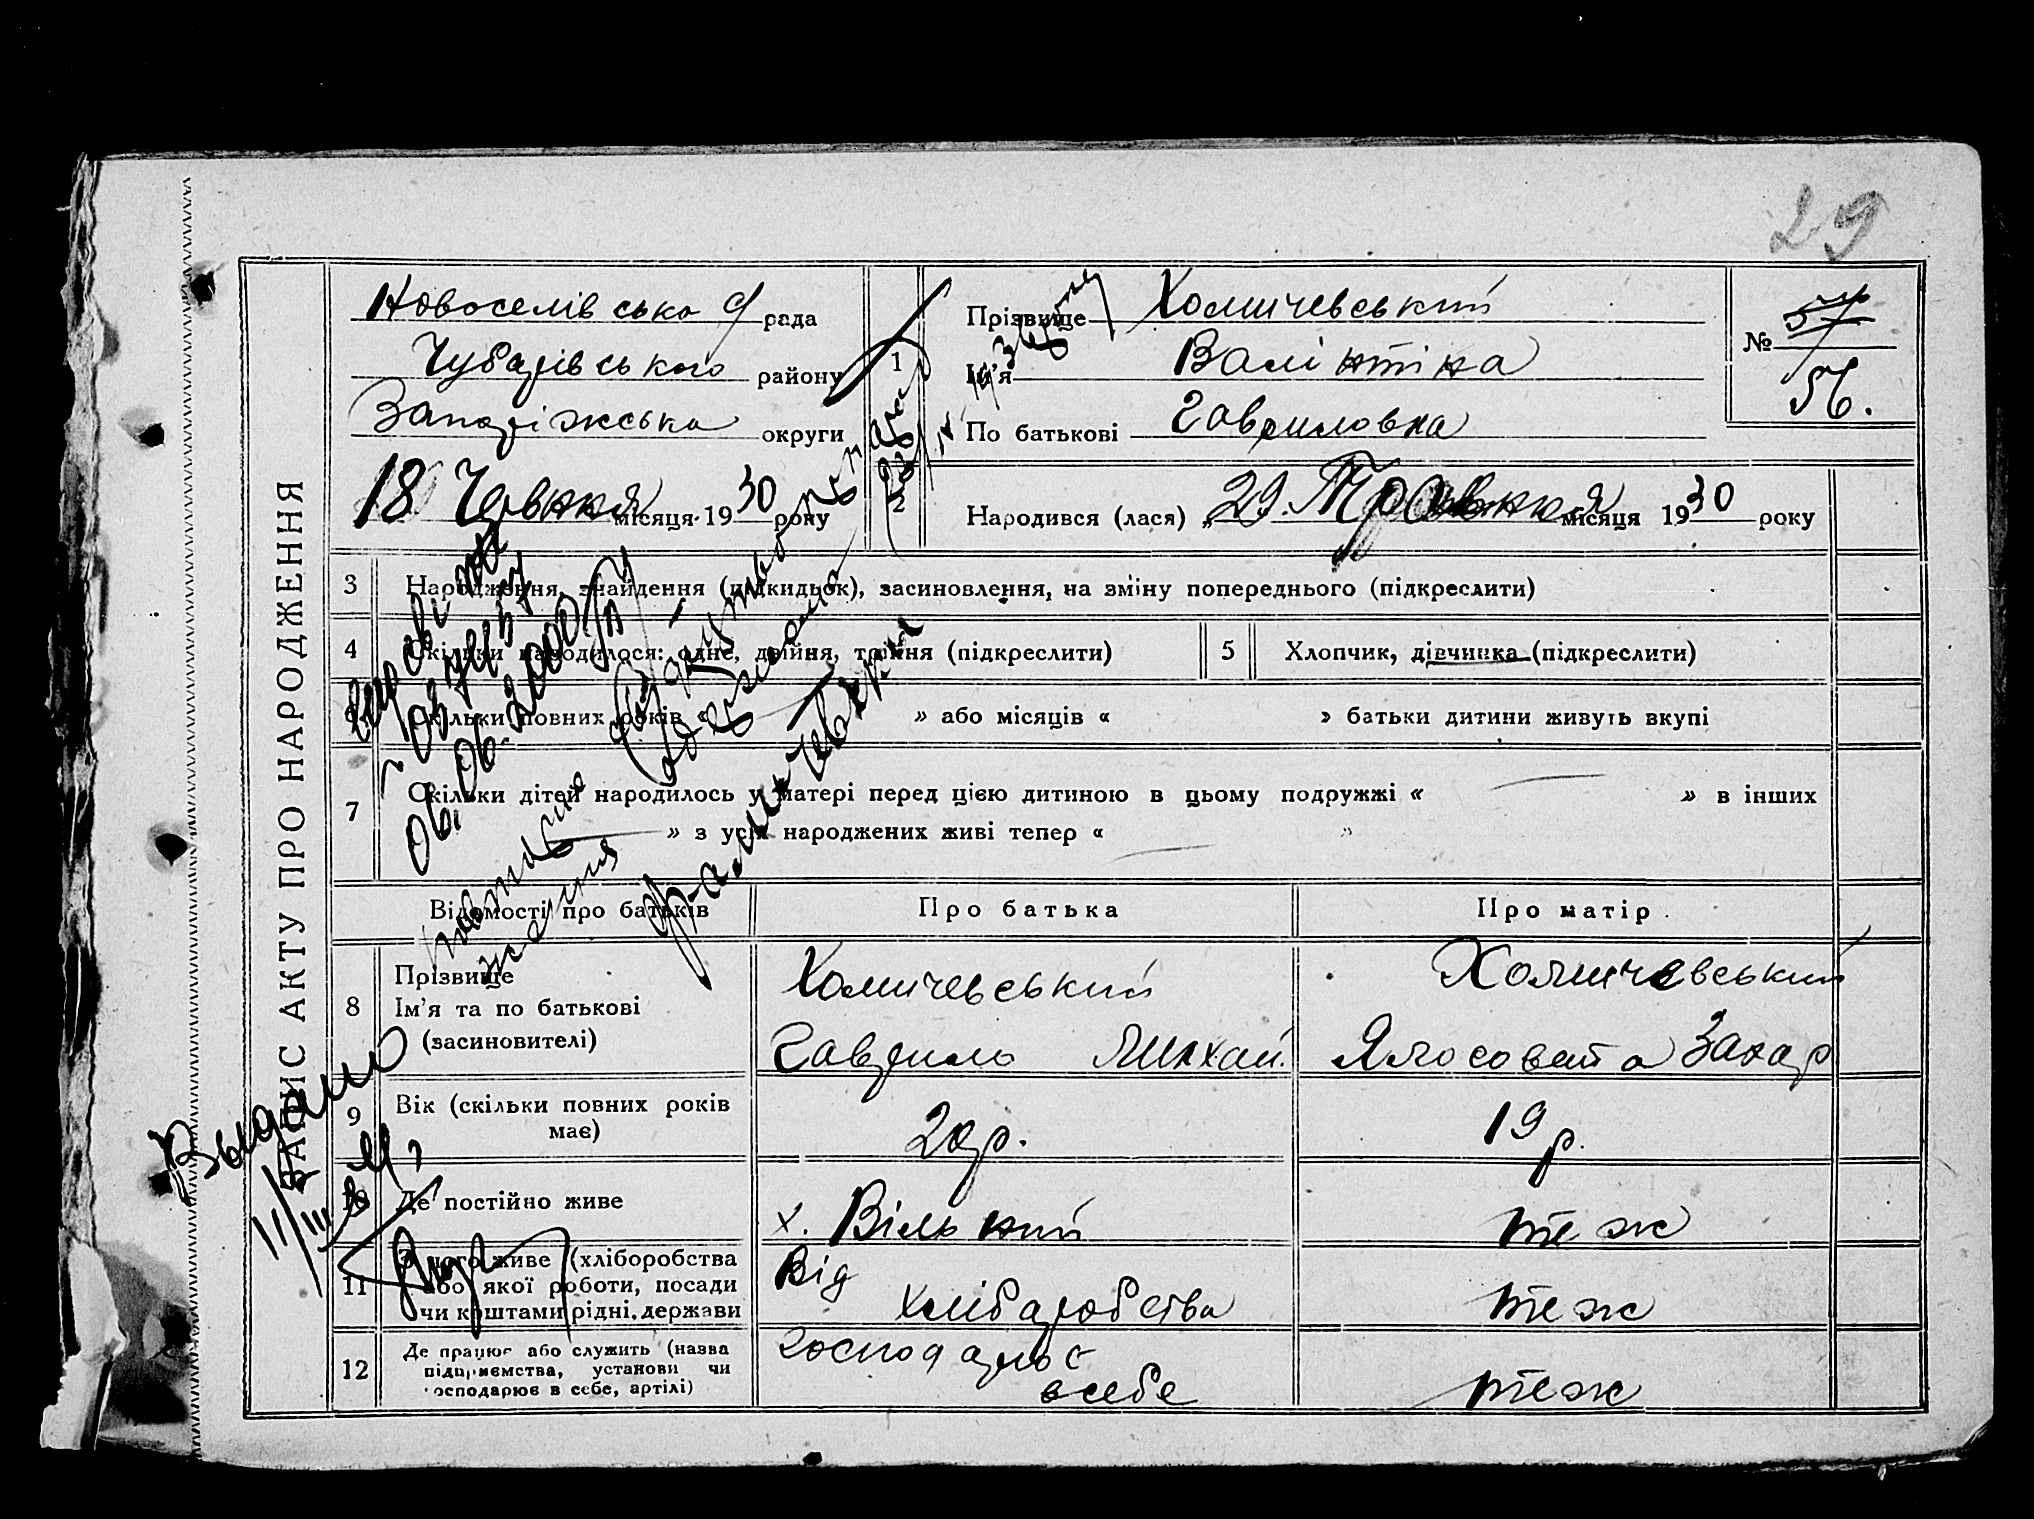 29
ЗАПИС АКТУ ПРО НАРОДЖЕННЯ
Новоселівська рада
Чубарівського району
Запоріжська округи
18 Червня місяця 1930 року
1
2
Прізвище Хомичевський
Ім'я Валінтіна
По батькові Гавриловна
№ 57
56.
Народився (лася) „ 29 Травня місяця 1930 року
3 Народження, знайдення (підкидьок), засиновлення, на зміну попереднього (підкреслити)
4 Скільки народилося: одне, двійня, трійня (підкреслити)
5 Хлопчик, дівчинка (підкреслити)
6 Скільки повних років „ » або місяців « » батьки дитини живуть вкупі
7 Скільки дітей народилось у матері перед цією дитиною в цьому подружжі « » в інших
» з усіх народжених живі тепер « »
Відомості про батьків
Про батька
Про матір
8 Прізвище
Ім'я та по батькові
(засиновителі)
Хомичевський
Гаврило Михай.
Хомичевський
Захар
9 Вік (скільки повних років
має)
19 р.
10 Де постійно живе
х. Вільний
теж
11 З чого живе (хліборобства
або якої роботи, посади
чи коштами рідні, держави
Від
хліборобства
теж
12 Де працює або служить (назва
підприємства, установи чи
господарює в себе, артілі)
господарює
в себе
теж
Выдано
11/III
06.06.2000